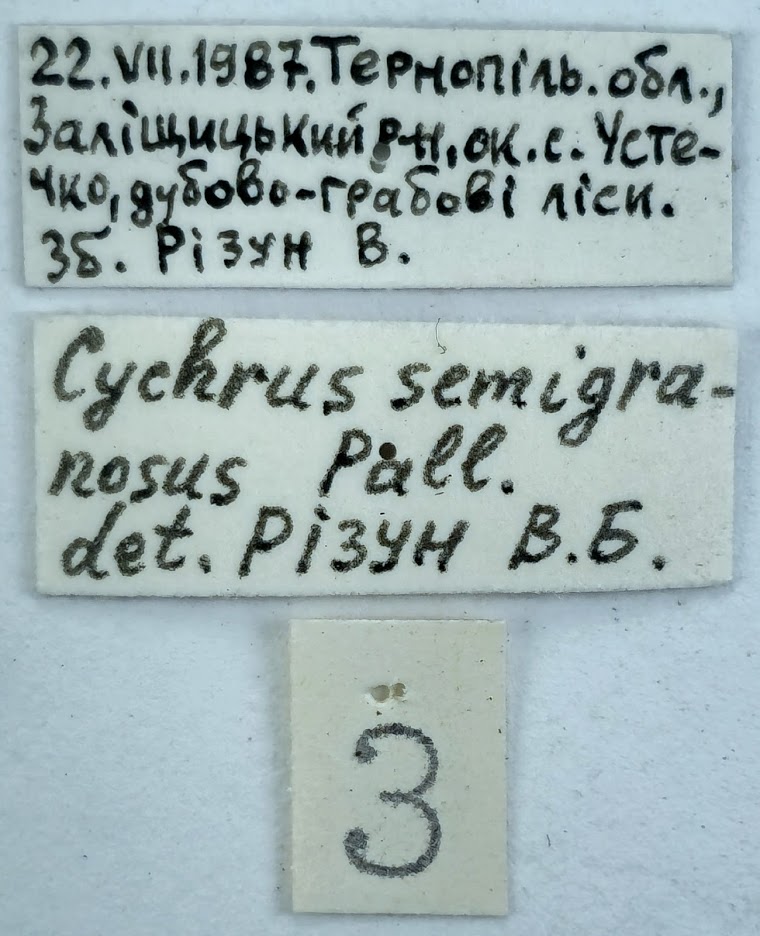 22.VII.1987.Тернопіль.обл.,
Заліщицький р-н, ок.с. Усте-
чко, дубово-грабові ліси.
Зб. Різун В.
Cychrus semigra-
nosus Pall.
det. Різун В.Б.
3